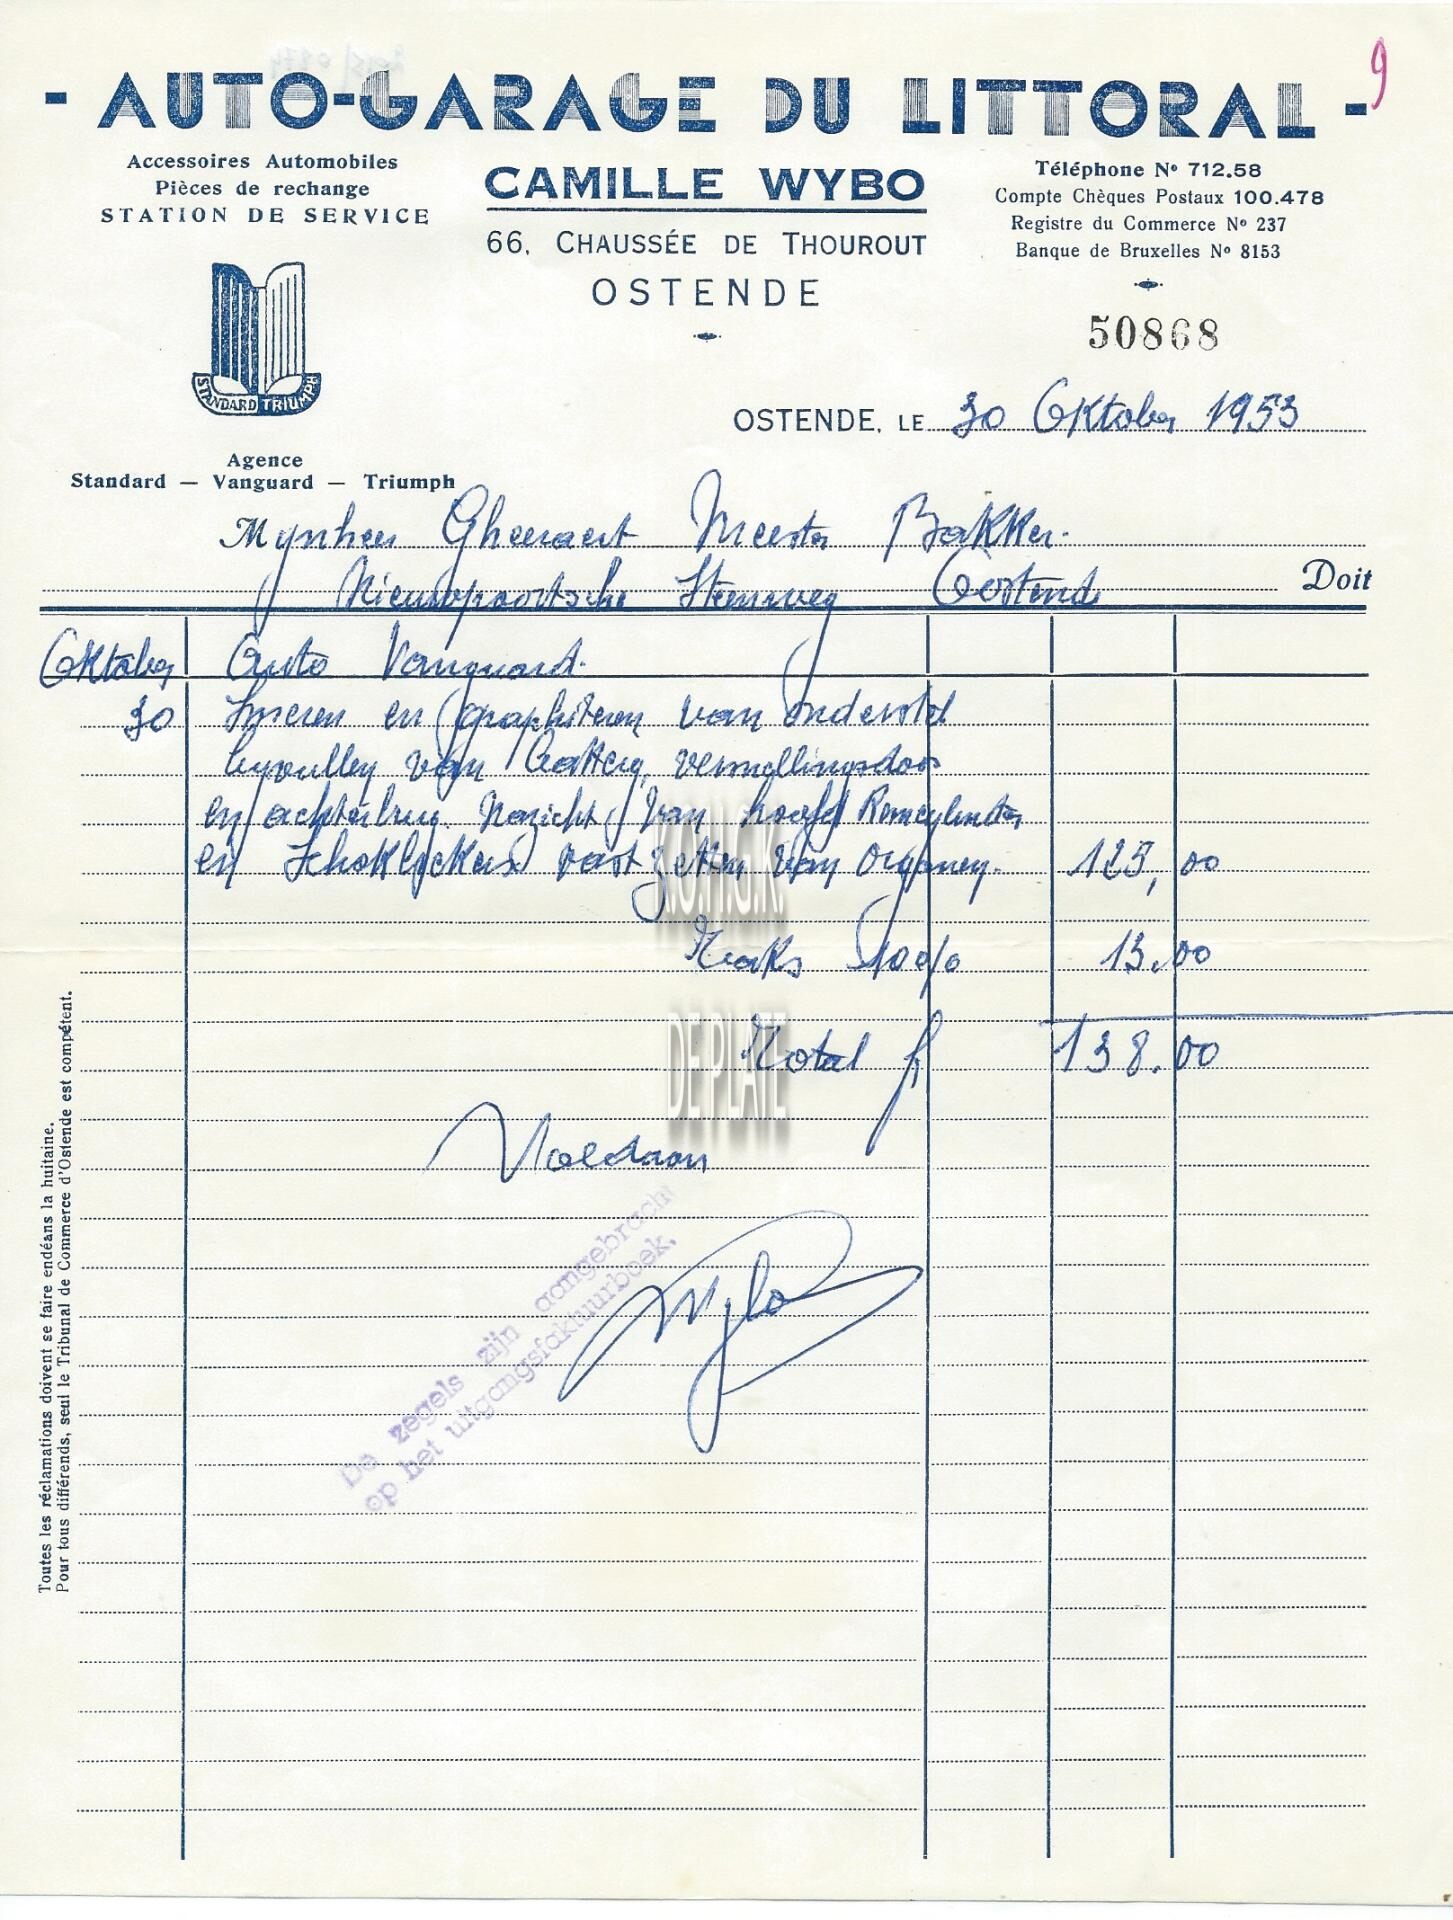 - AUTO-GARAGE DU LITTORAL -
9
Accessoires Automobiles
Pièces de rechange
STATION DE SERVICE
CAMILLE WYBO
66, CHAUSSÉE DE THOUROUT
OSTENDE
Téléphone Nº 712.58
Compte Chèques Postaux 100.478
Registre du Commerce Nº 237
Banque de Bruxelles Nº 8153
50868
STANDARD TRIUMPH
OSTENDE, LE 30 Oktober 1953
Agence
Standard — Vanguard — Triumph
Mynheer Gheeraert Meester Bakker.
Nieuwpoortsche Steenweg Oostende Doit
Oktober Auto Vanguard.
30 Smeren en graphiteren van onderstel
byvullen van Battery, versnellingsdoos
en achterbrug Nazicht van hoofd Remcylinder
en Schokbrekers vast zetten van Organen. 125,00
Taks 10% 13.00
Total fr 138.00
Voldaan
Wybo
De zegels zijn aangebracht
op het uitgangsfaktuurboek.
Toutes les réclamations doivent se faire endéans la huitaine.
Pour tous différends, seul le Tribunal de Commerce d'Ostende est compétent.
K.O.H.G.K.
DE PLATE